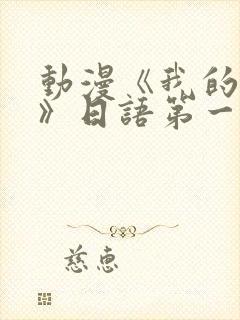 動漫《我的
》日語第一
慈惠